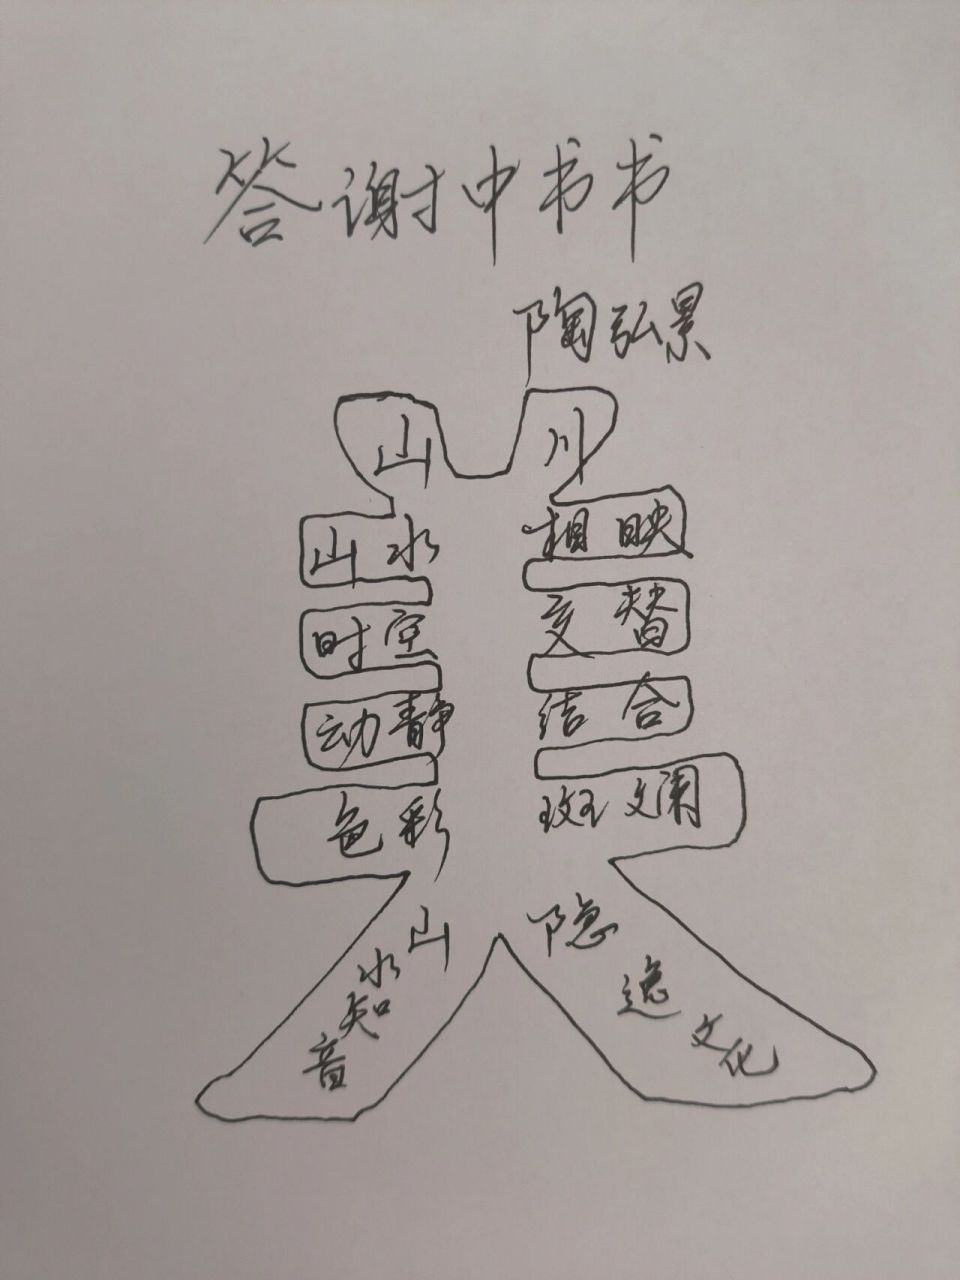 答谢中书书
陶弘景
山 川
山水 相映
时空 交替
动静 结合
色彩 斑斓
山水知音
隐逸文化